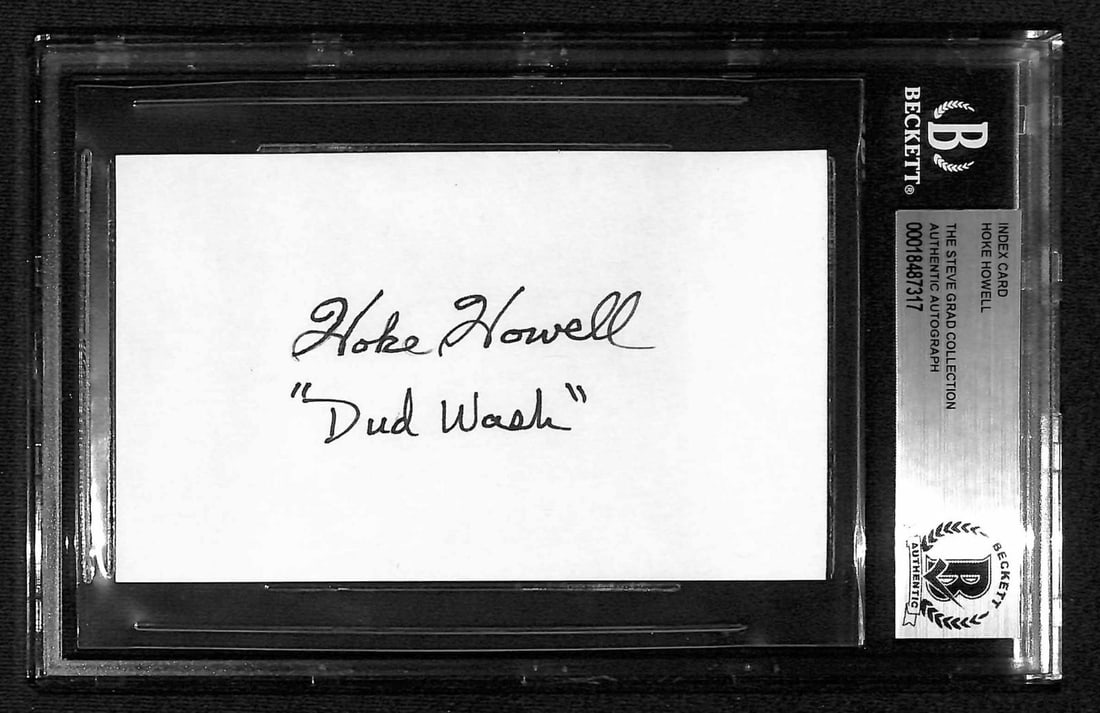 Hoke Howell
"Dud Wash"
BECKETT®
B
INDEX CARD
HOKE HOWELL
THE STEVE GRAD COLLECTION
AUTHENTIC AUTOGRAPH
00018487317
BECKETT
B
AUTHENTIC